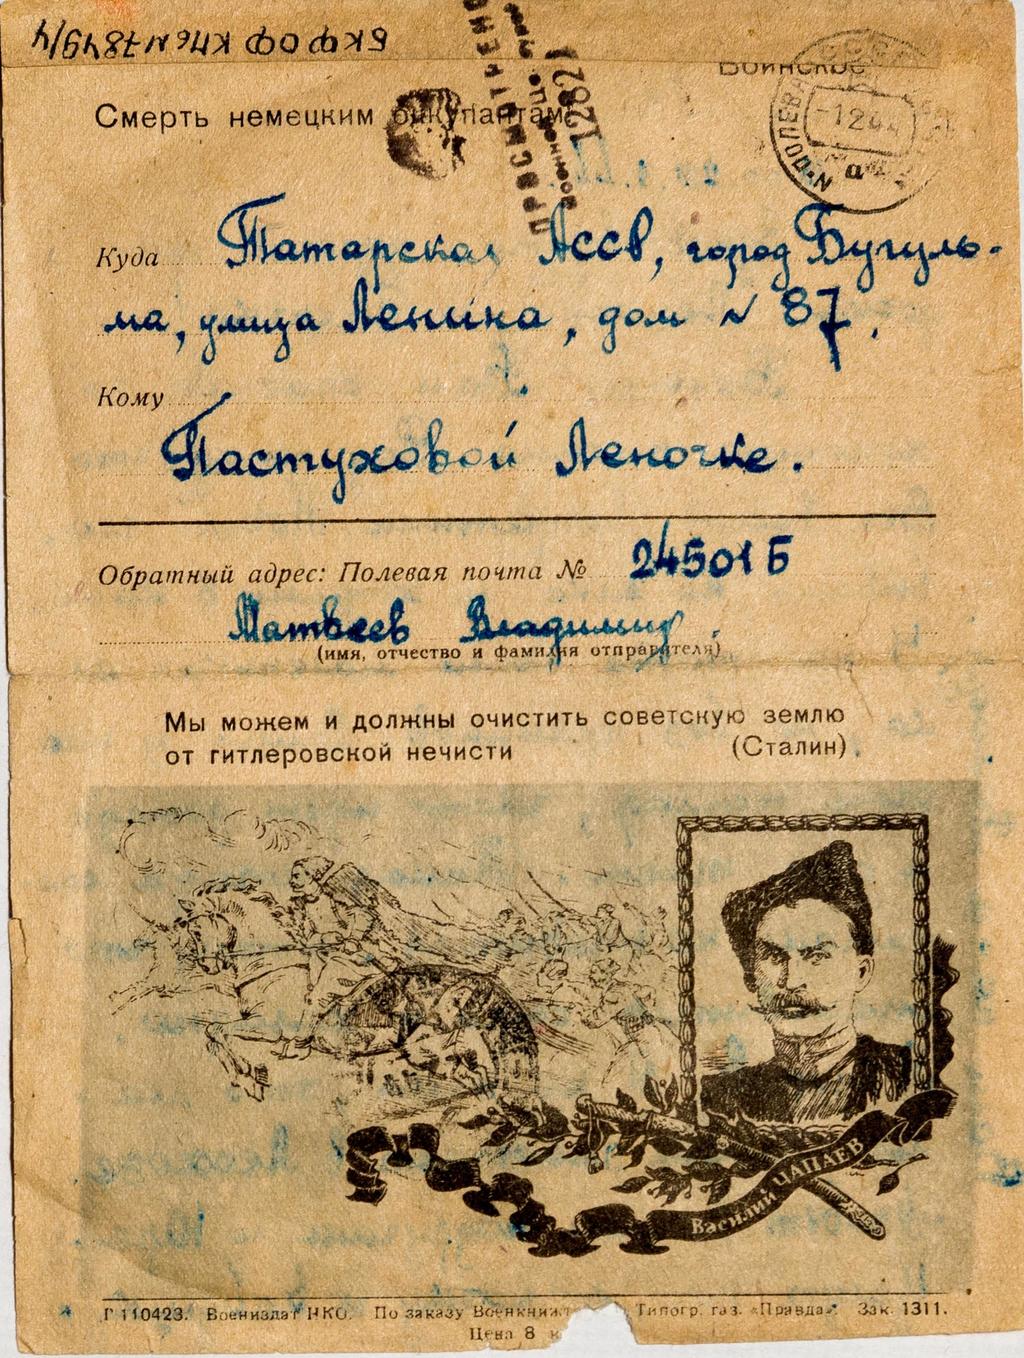 БКФ ОФ КП6 № 7849/4
Воинское
Смерть немецким оккупантам
ПРОСМОТРЕНО
Военной Цензурой
12821
ПОЛЕВАЯ
Куда Татарская АССР, город Бугуль-
ма, улица Ленина, дом № 87.
Кому
Пастуховой Леночке.
Обратный адрес: Полевая почта № 24501 Б
Матвеев Владимир.
(имя, отчество и фамилия отправителя)
Мы можем и должны очистить советскую землю
от гитлеровской нечисти (Сталин)
Василий ЧАПАЕВ
Г 110423. Воениздат НКО. По заказу Типогр. газ. «Правда». Зак. 1311.
Цена 8 к